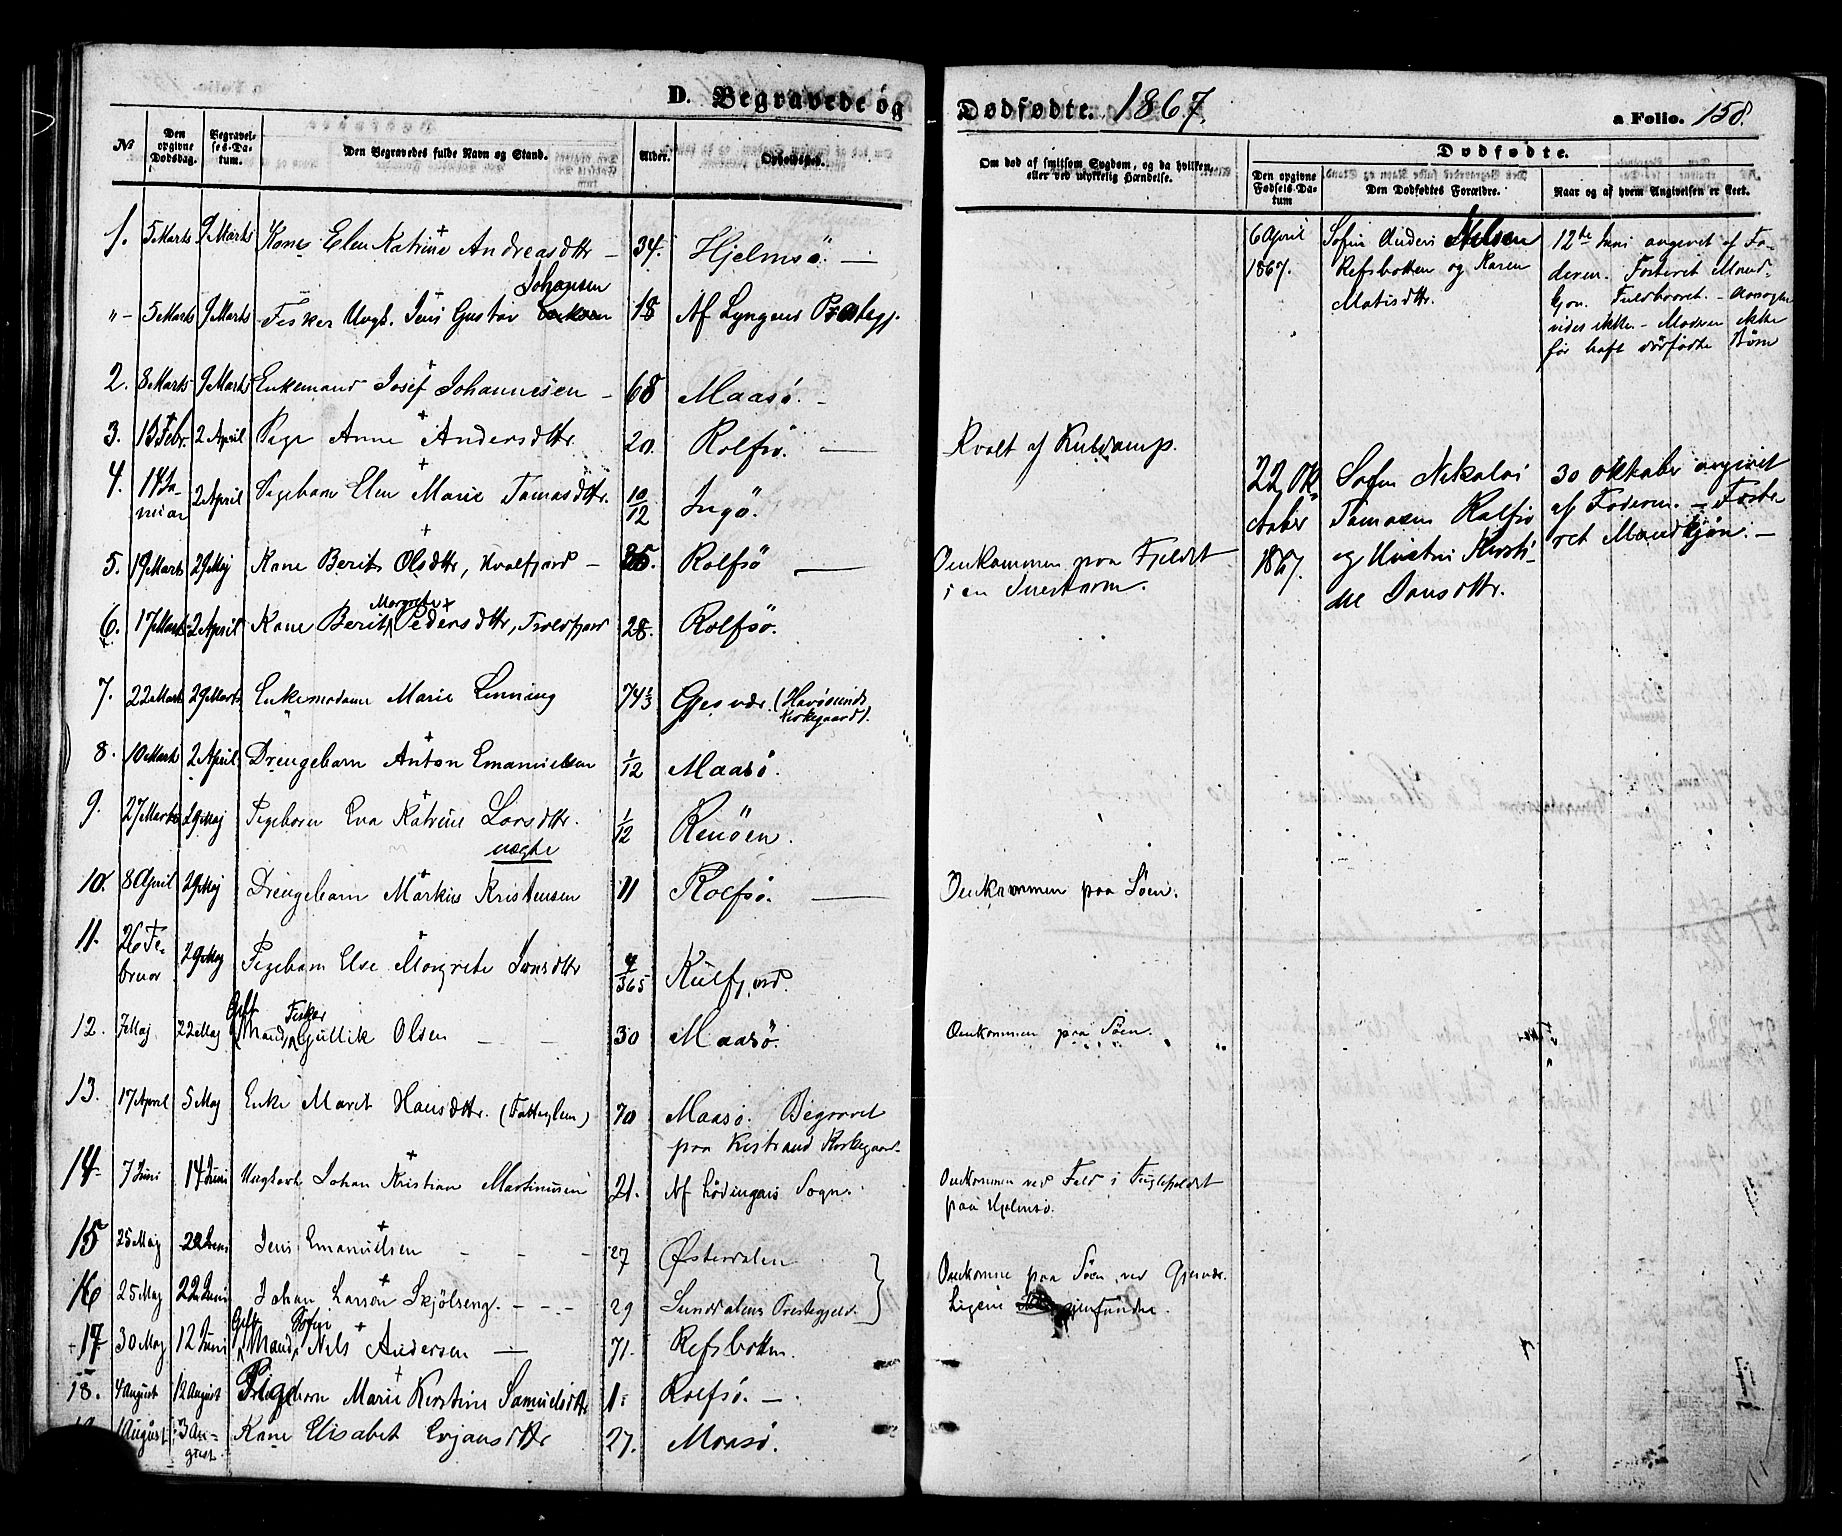 D. Begravede og Dødfødte. 1867.
a Folio. 158.
№ Den opgivne Dødsdag. Begravelses-Datum. Den Begravedes fulde Navn og Stand. Alder. Opholdssted.
Om død af smitsom Sygdom, og da hvilken, eller ved ulykkelig Hændelse.
Dødfødte.
Den opgivne Fødsels-Datum Den Dødfødtes Forældre. Naar og af hvem Angivelsen er skeet.
1. 5 Marts 9 Marts Kone Elen Katrine Andreasdttr 34. Hjelmsö.
Johansen
"- 5 Marts 9 Marts Fisker Ungk. Jens Gustav 18 Af Lyngens Præstegj.
2. 8 Marts 9 Marts Enkemand Josef Johannesen 68 Maasö.
3. 13 Febr. 2 April Pige Anne Andersdttr. 20. Rolfsö. Kvalt af Kuldamp.
4. 14 Januar 2 April Pigebarn Elen Marie Tomasdttr. 10/12 Ingö.
5. 19 Marts 29 Maj Kone Berit Olsdttr, Kvalfjord - 35. Rolfsö Omkommen paa Fjeldet
i en Snestorm.
Margrete
6. 17 Marts 2 April Kone Berit Pedersdttr, Troldfjord 28. Rolfsö.
7. 22 Marts 29 Marts Enkemadame Marie Lenning 74 1/3 Gjesvær. (Havösunds
Kirkegaard).
8. 10 Marts 2 April. Drengebarn Anton Emanuelsen 1/12 Maasö.
9. 27 Marts 29 Maj Pigebarn Eva Katrine Larsdttr. 1/12 Renöen.
uægte
10. 8 April 29 Maj Drengebarn Markus Kristensen 11 Rolfsö. Omkommen paa Söen.
11. 26 Februar 29 Maj Pigebarn Else Margrete Jonsdttr /365 Kulfjord.
Gift Fisker
12. 7 Maj 22 Maj Mand, Gullik Olsen 30 Maasö. Omkommen paa Söen.
13. 17 April 5 Maj Enke Maret Hansdttr. (Fattiglem) 70 Maasö. Begravet
paa Kistrand Kirkegaard.
14. 7 Juni 14 Juni Ungkarl Johan Kristian Martinusen 21. Af Lödingens Sogn. Omkommen ved Fald i Fuglefjeldet
paa Hjelmsö.
15 25 Maj 22 Juni Jens Emanuelsen 27 Østerdalen
16 25 Maj 22 Juni Johan Larsen Skjölseng. 29 Sundalens Præstegjeld. Omkomne paa Söen ved Gjesvær.
Ligene gjenfundne.
Gift Söfin
17. 30 Maj 12 Juni Mand, Nils Andersen 71. Refsbotten.
18. 4 August 12 August Pigebarn Marie Kirstine Samuelsdttr 1. Rolfsö.
1 August 3 August. Kone Elisabet Evjansdttr 27. Maasö.
6 April 1867. Söfin Anders Nilsen
Refsbotten og Karen
Matisdttr.
12te Juni angivet af Fa-
deren. Fosteret Mand-
kjön. Fuldbaaret. - Aarsagen
vides ikke. - Moderen ikke
før haft dødfødte Børn
22 Oktober 1867. Söfin Nikolai
Tomasen Rolfsö
og Hustru Kirsti-
ne Jonsdttr.
30 Oktober angivet
af Faderen. - Foste-
ret Mandkjön. -